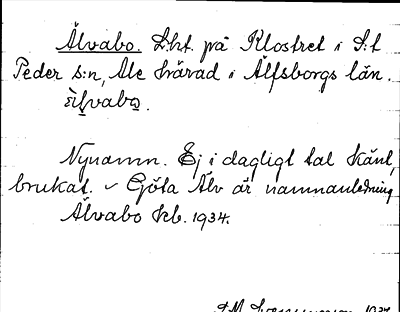 Älvabo. Lht. på Klostret i S:t
Peder s:n, Ale härad i Älfsborgs län.
Nynamn. Ej i dagligt tal känt,
brukat. Göta Älv är namnanledning
Älvabo kb. 1934.
1937